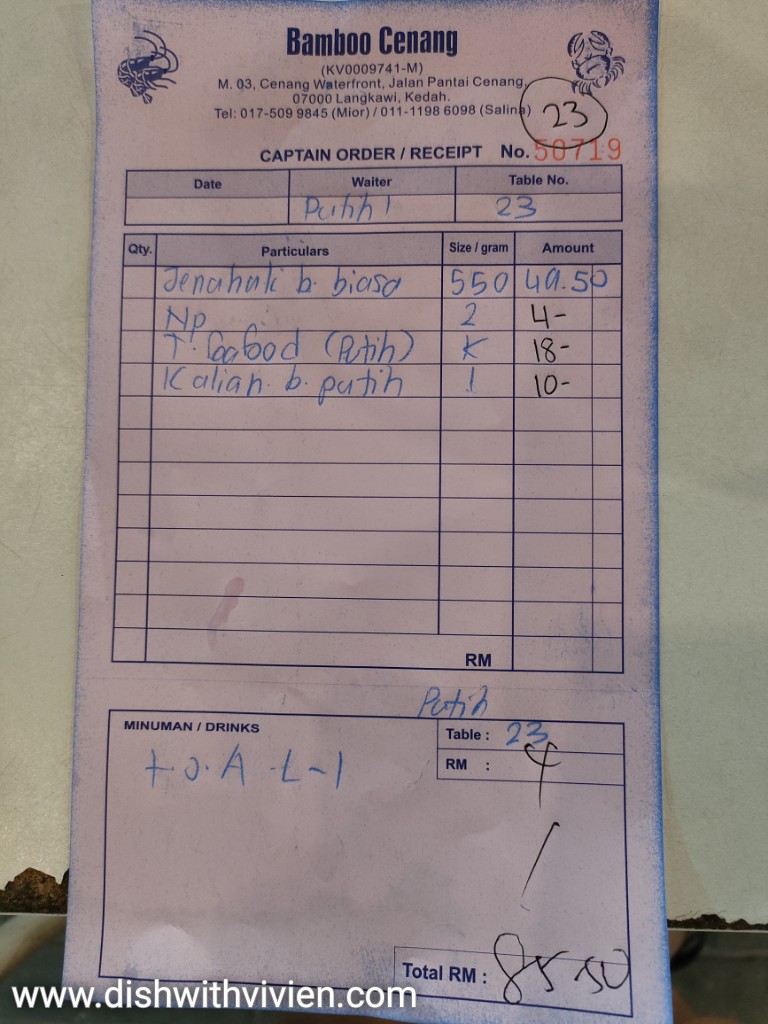 Bamboo Cenang
(KV0009741-M)
M. 03, Cenang Waterfront, Jalan Pantai Cenang,
07000 Langkawi, Kedah.
Tel: 017-509 9845 (Mior) / 011-1198 6098 (Salina)
23
CAPTAIN ORDER / RECEIPT No. 50719
Date Waiter Table No.
Putih 1 23
Qty. Particulars Size / gram Amount
Jenahak b. biasa 550 49.50
Np 2 4-
T. (Putih) K 18-
Kalian. b. putih 1 10-
RM
Putih
MINUMAN / DRINKS Table : 23
RM : 4
Total RM : 85.50
www.dishwithvivien.com